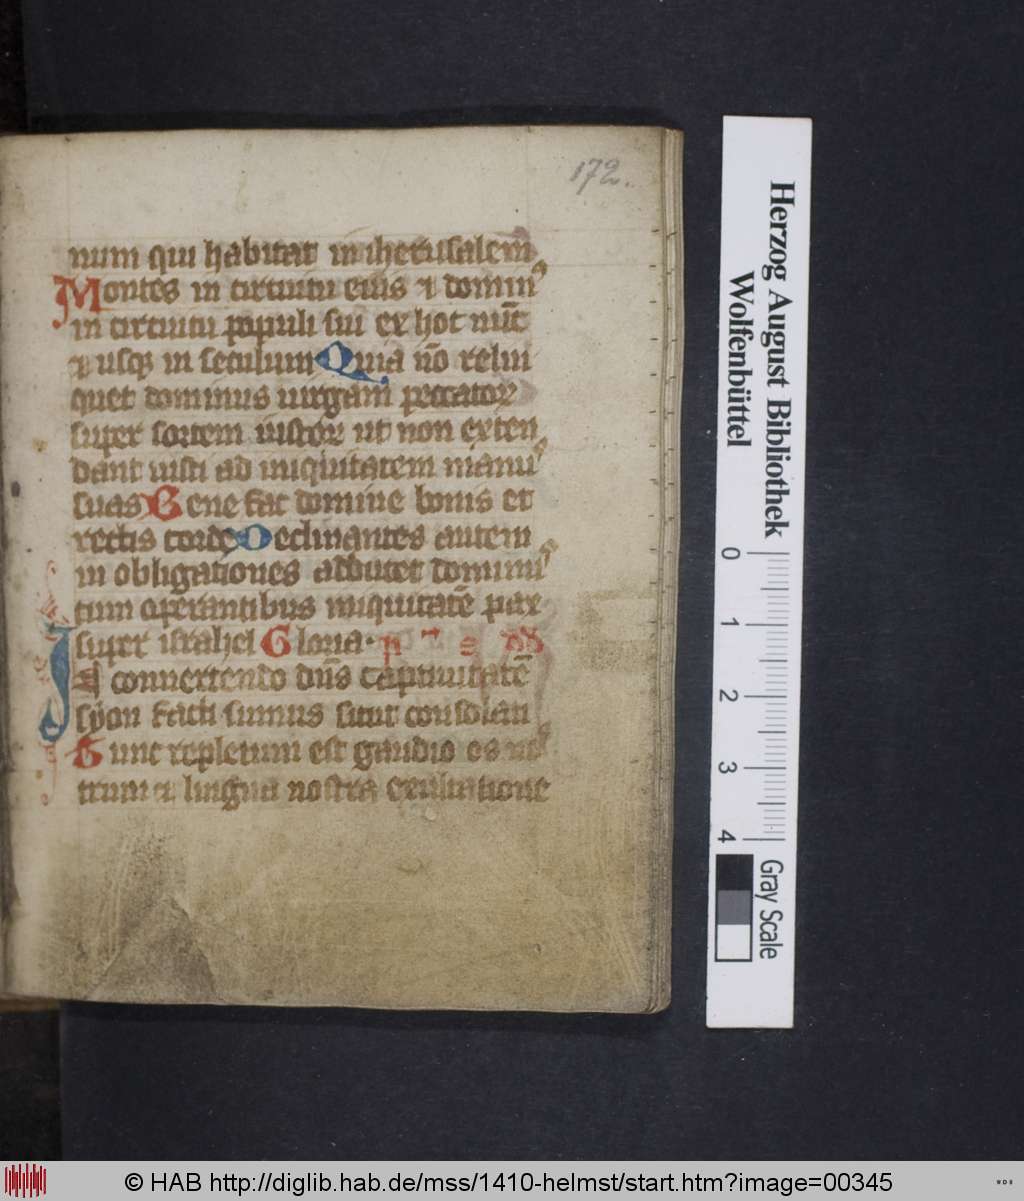 172.
num qui habitat in iherusalem
Montes in circuitu eius ⁊ domin⁹
in circuitu populi sui ex hoc nūc
⁊ usqꝫ in seculum Quia nō relin
quet dominus uirgam peccatoꝝ
super sortem iustoꝝ ut non exten
dant iusti ad iniquitatem manus
suas Bene fac domine bonis et
rectis corde Declinantes autem
in obligationes adducet dominus
cum operantibus iniquitatē pax
super israhel Gloria.
In conuertendo dn̄s captiuitatē
syon facti sumus sicut consolati
Tunc repletum est gaudio os nos
trum ⁊ lingua nostra exultatione
Herzog August Bibliothek
Wolfenbüttel
0 1 2 3 4
Gray Scale
© HAB http://diglib.hab.de/mss/1410-helmst/start.htm?image=00345